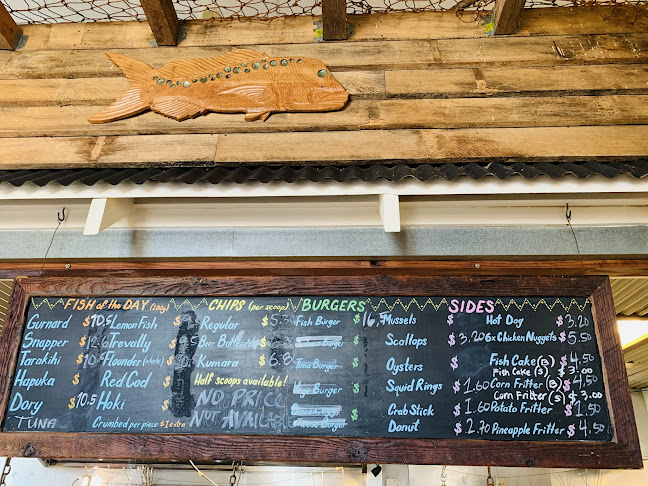 FISH of the DAY CHIPS (per scoop) BURGERS SIDES
Gurnard $10.5
Snapper $12.6
Tarakihi $10
Hapuka $
Dory $10.5
TUNA
Lemon Fish $
Trevally $
Flounder (whole) $
Red Cod $
Hoki $
Crumbed per piece $1 extra
Regular $5
Bar Bottled $6
Kumara $6.8
Half scoops available!
NO PRICE
NOT AVAILABLE
Fish Burger $16.5
$
Tuna Burger $
Vege Burger $
$
Mussels $
Scallops $3.20
Oysters $
Squid Rings $1.60
Crab Stick $1.60
Donut $2.70
Hot Dog $3.20
6x Chicken Nuggets $5.50
Fish Cake (B) $4.50
Fish Cake (S) $3.00
Corn Fritter (B) $4.50
Corn Fritter (S) $3.00
Potato Fritter $1.50
Pineapple Fritter $4.50